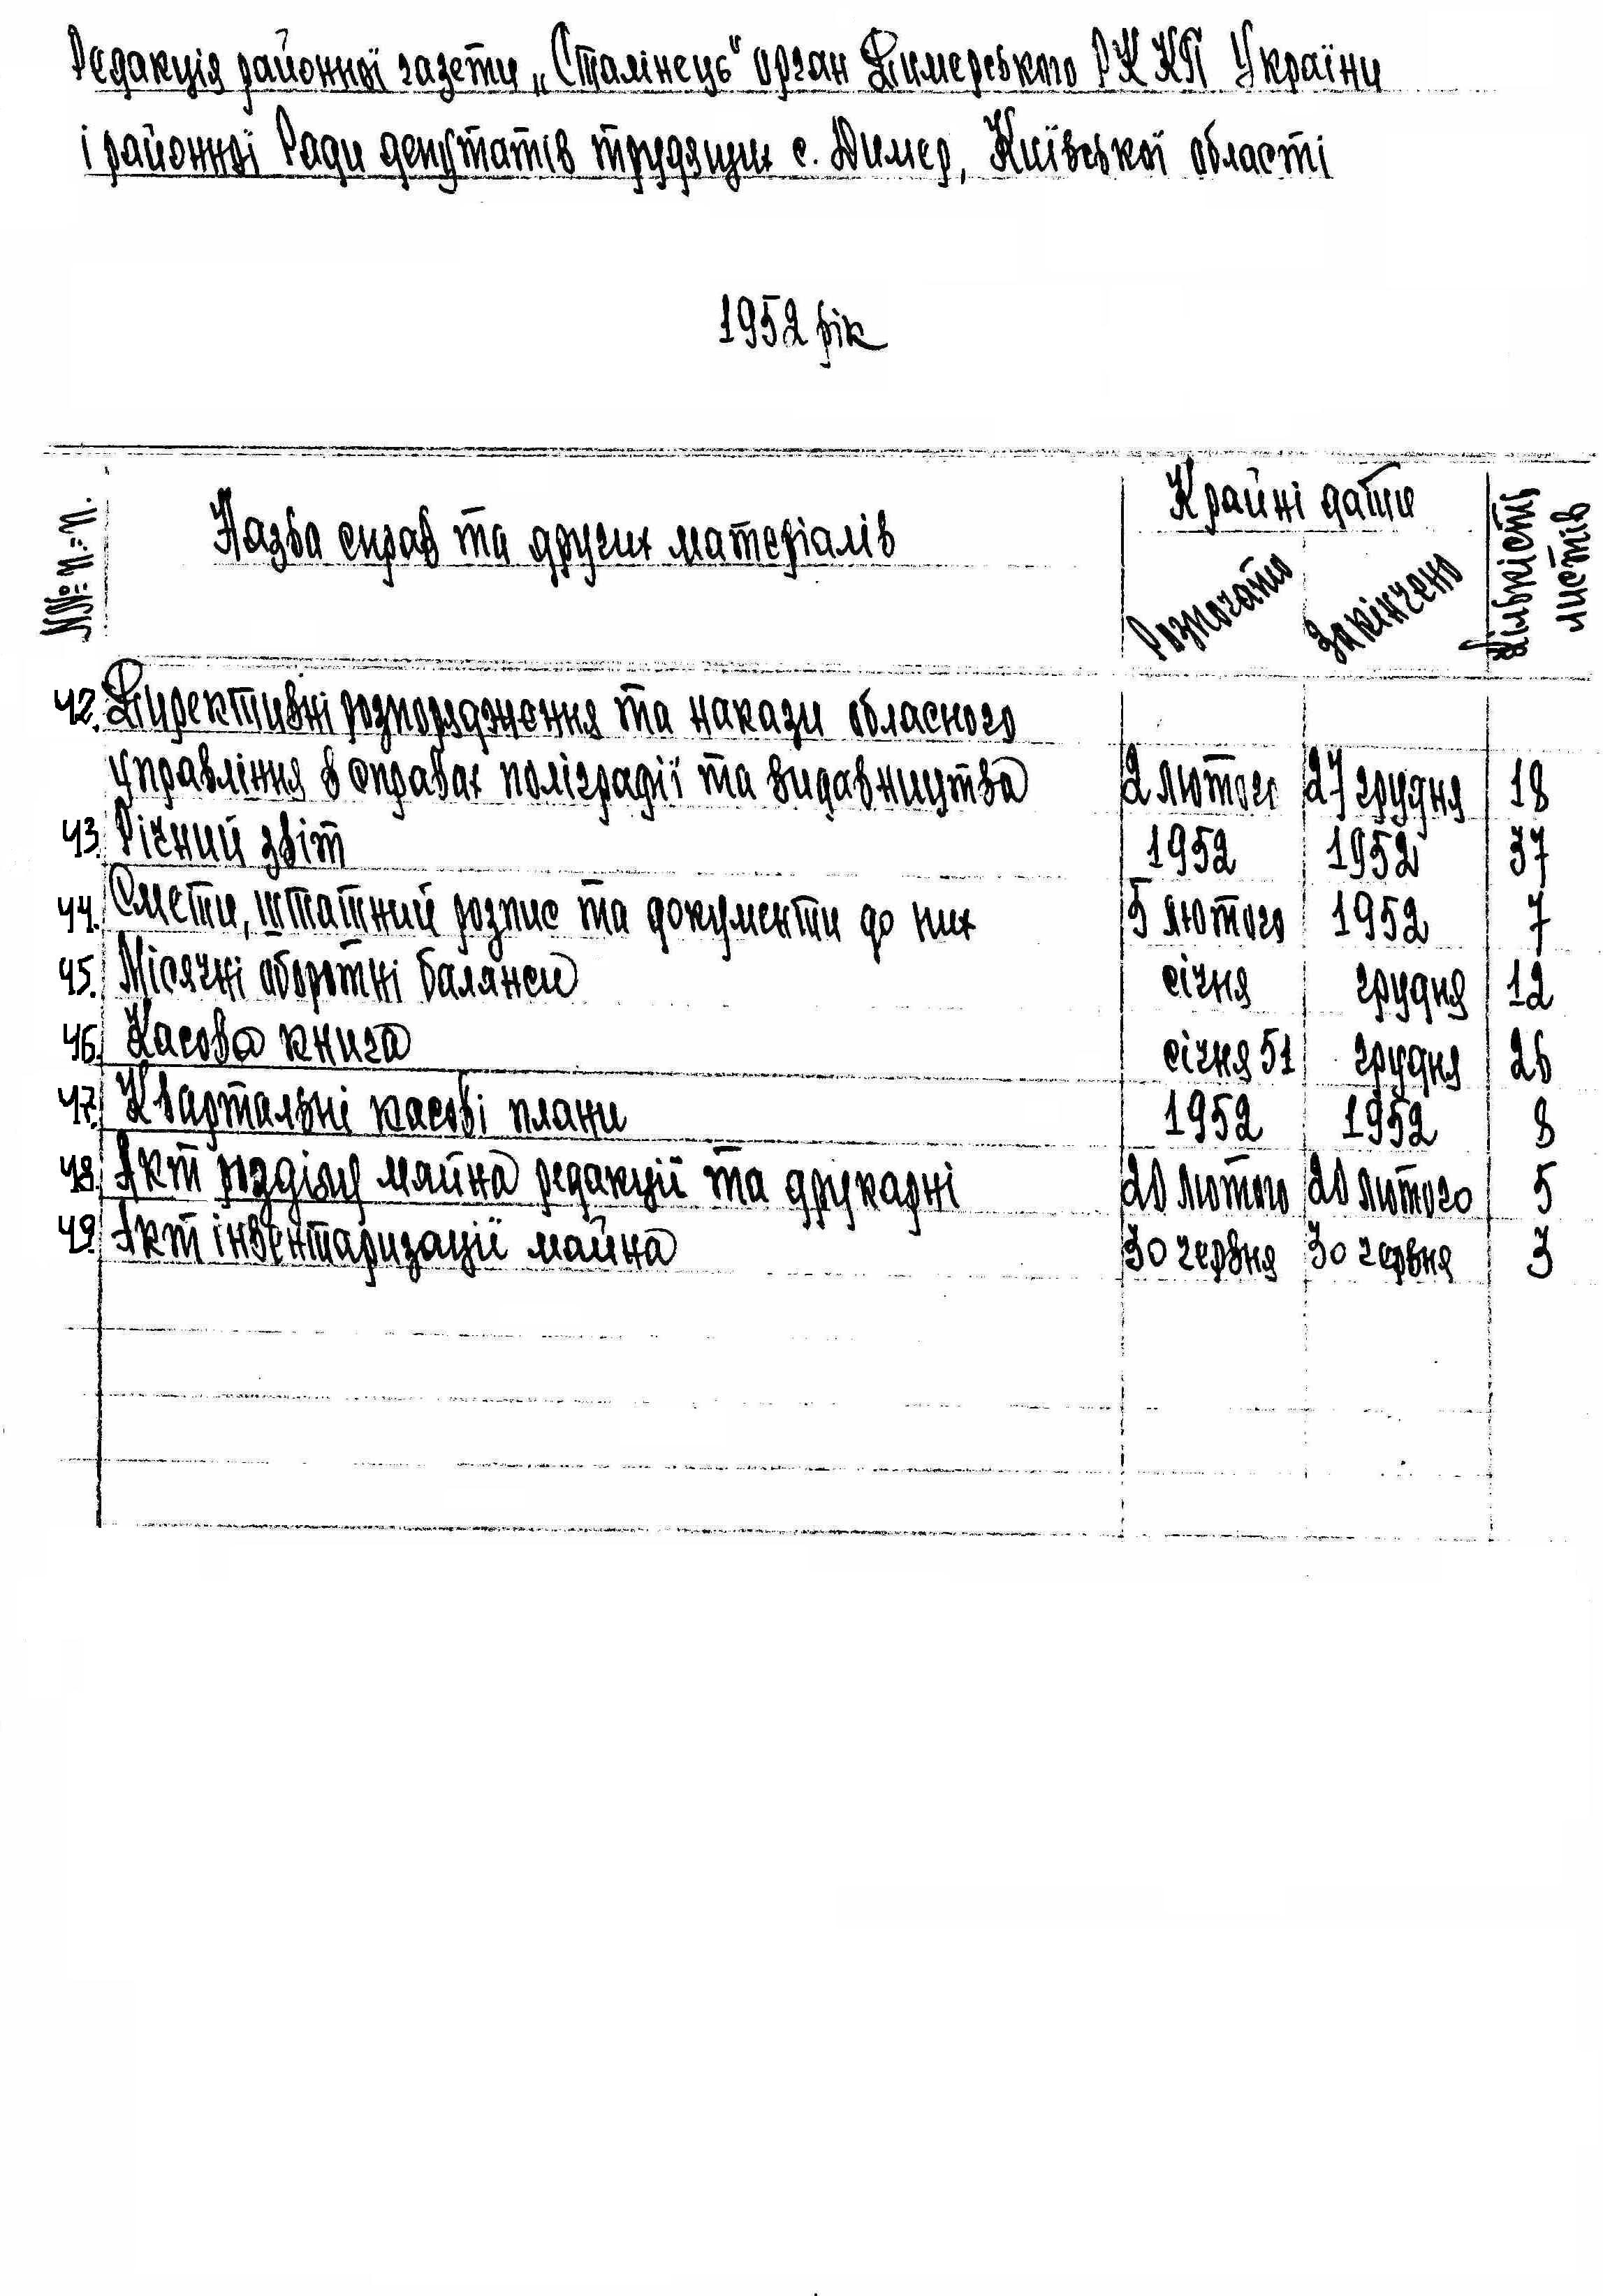 Редакція районної газети „Сталінець" орган Димерського РК КП України
і районної Ради депутатів трудящих с. Димер, Київської області
1952 рік
№№: п.-п. Назва справ та других матеріалів Крайні дати Кількість листів
Розпочато Закінчено
42. Директивні розпорядження та накази обласного
управління в справах поліграфії та видавництва 2 лютого 27 грудня 18
43. Річний звіт 1952 1952 37
44. Смети, штатний розпис та документи до них 5 лютого 1952 7
45. Місячні оборотні баланси січня грудня 12
46. Касова книга січня 51 грудня 26
47. Квартальні касові плани 1952 1952 8
48. Акт розділу майна редакції та друкарні 20 лютого 20 лютого 5
49. Акт інвентаризації майна 30 червня 30 червня 3